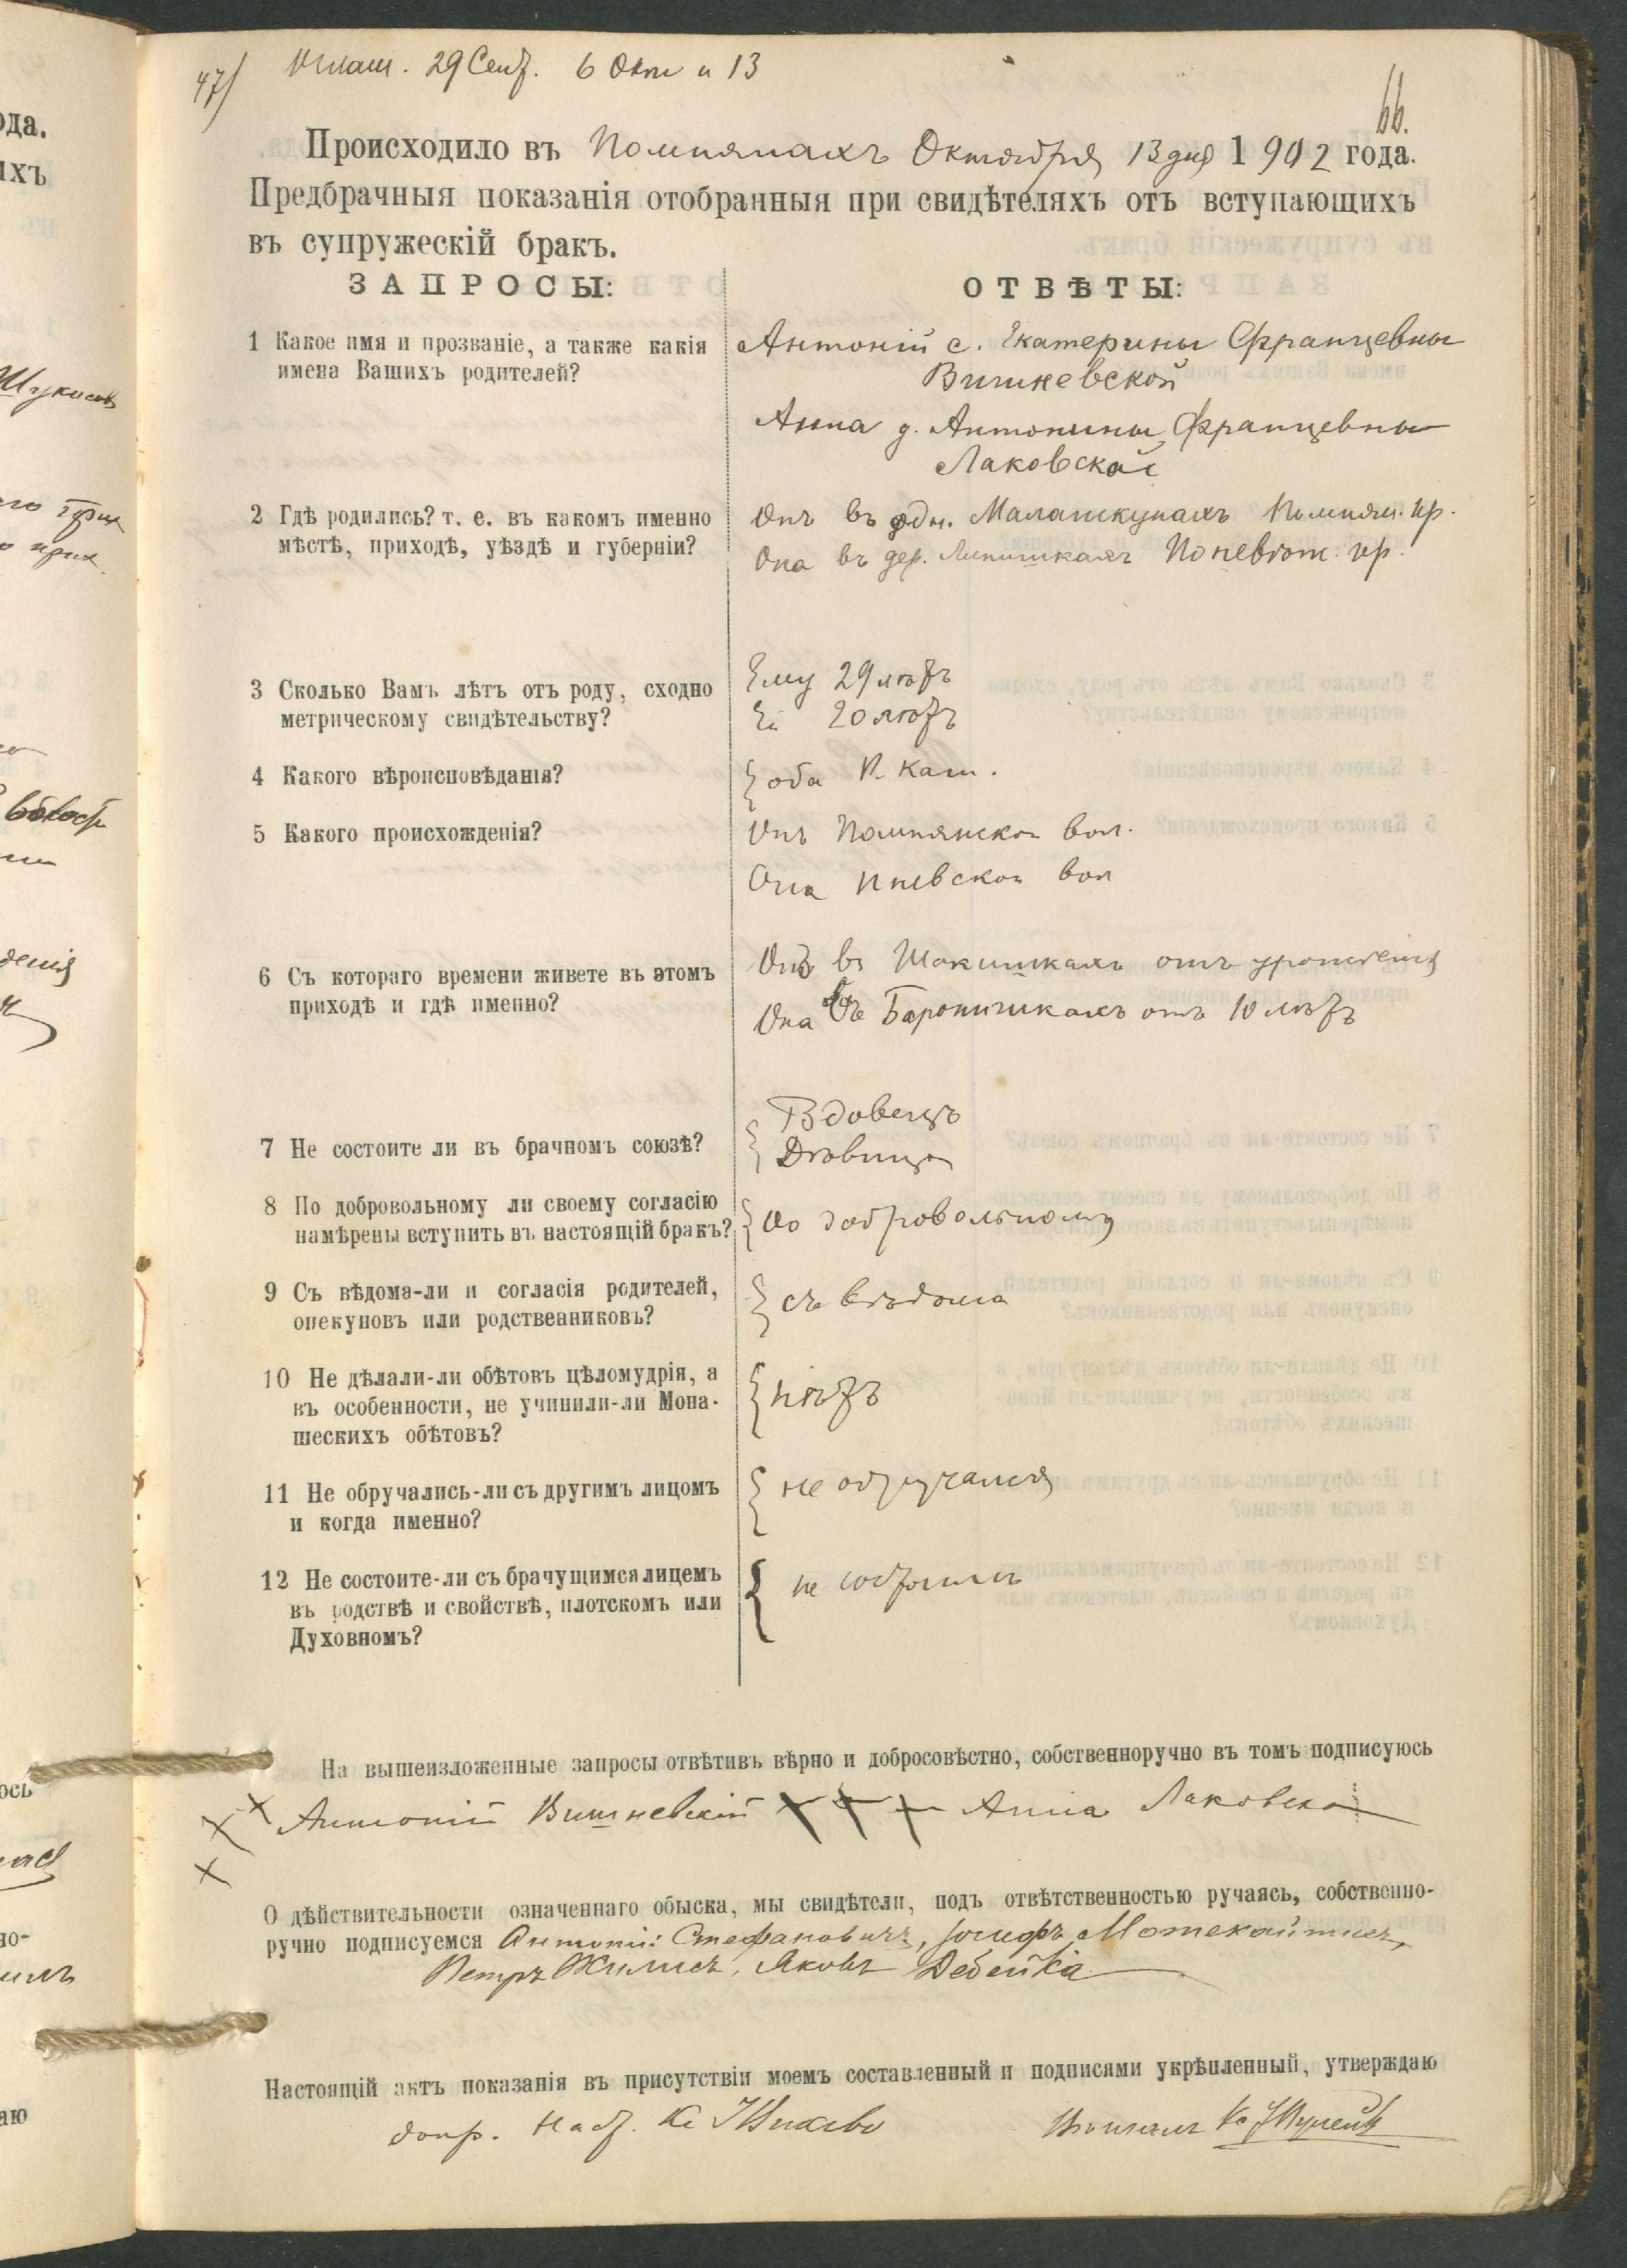 47) Оглаш. 29 Сент. 6 Окт и 13
66.
Происходило въ Помпянахъ Октября 13 дня 1902 года.
Предбрачныя показанія отобранныя при свидѣтеляхъ отъ вступающихъ
въ супружескій бракъ.
ЗАПРОСЫ:
ОТВѢТЫ:
1 Какое имя и прозваніе, а также какія
имена Вашихъ родителей?
Антоній с. Екатерины Францевны
Вишневской
Анна д. Антонины Францевны
Лаковской
2 Гдѣ родились? т. е. въ какомъ именно
мѣстѣ, приходѣ, уѣздѣ и губерніи?
Онъ въ Помпян. пр.
Она въ дер. Поневѣж. пр.
3 Сколько Вамъ лѣтъ отъ роду, сходно
метрическому свидѣтельству?
Ему 29 лѣтъ
Ей 20 лѣтъ
4 Какого вѣроисповѣданія?
оба Р. Кат.
5 Какого происхожденія?
Онъ Помпянской вол.
Она вол
6 Съ котораго времени живете въ этомъ
приходѣ и гдѣ именно?
Онъ въ отъ урожденія
Она въ отъ 10 лѣтъ
7 Не состоите ли въ брачномъ союзѣ?
Вдовецъ
Дѣвица
8 По добровольному ли своему согласію
намѣрены вступить въ настоящій бракъ?
по добровольному
9 Съ вѣдома-ли и согласія родителей,
опекуновъ или родственниковъ?
съ вѣдома
10 Не дѣлали-ли обѣтовъ цѣломудрія, а
въ особенности, не учинили-ли Мона-
шескихъ обѣтовъ?
нѣтъ
11 Не обручались-ли съ другимъ лицомъ
и когда именно?
не обручался
12 Не состоите-ли съ брачущимся лицемъ
въ родствѣ и свойствѣ, плотскомъ или
Духовномъ?
не
На вышеизложенные запросы отвѣтивъ вѣрно и добросовѣстно, собственноручно въ томъ подписуюсь
× × × Антоній Вишневскій × × × Анна Лаковска
О дѣйствительности означеннаго обыска, мы свидѣтели, подъ отвѣтственностью ручаясь, собственно-
ручно подписуемся Антоній Стефановичъ, Іосифъ Мотекайтисъ,
Петръ Жилисъ, Яковъ Дебейка
Настоящій актъ показанія въ присутствіи моемъ составленный и подписями укрѣпленный, утверждаю